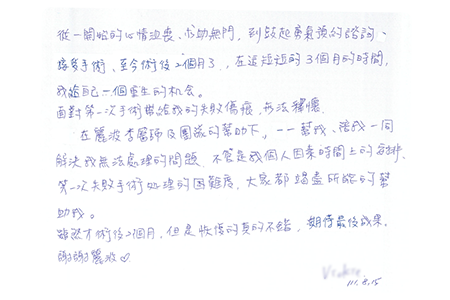 從一開始的心情沮喪、求助無門，到鼓起勇氣預約諮詢、
接受手術、至今術後2個月了，在這短短的3個月的時間，
我給自己一個重生的机会。
面對第一次手術帶給我的失敗傷痕，無法釋懷。
在麗波李醫師及團隊的幫助下，一一幫我、陪我一同
解決我無法處理的問題，不管是我個人因素時間上的安排、
第一次失敗手術處理的困難度，大家都竭盡所能的幫
助我。
雖然才術後2個月，但是恢復的真的不錯，期待最後成果。
謝謝麗波♡
111.8.15